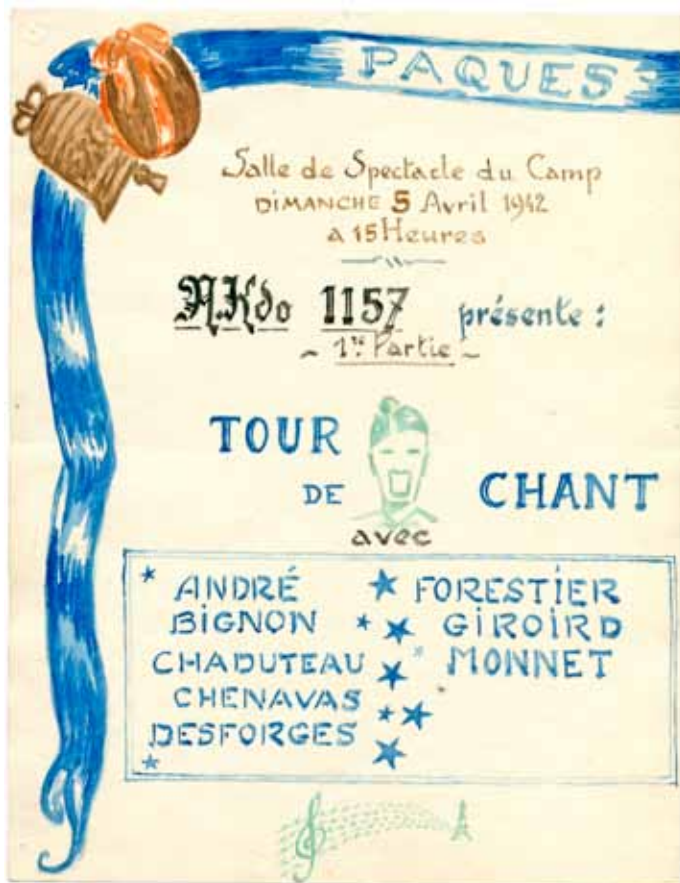 PAQUES:
Salle de Spectacle du Camp
DIMANCHE 5 Avril 1942
a 15 Heures
A.Kdo 1157 présente :
~ 1re Partie ~
TOUR
DE CHANT
avec
ANDRÉ
BIGNON
CHADUTEAU
CHENAVAS
DESFORGES
FORESTIER
GIROIRD
MONNET